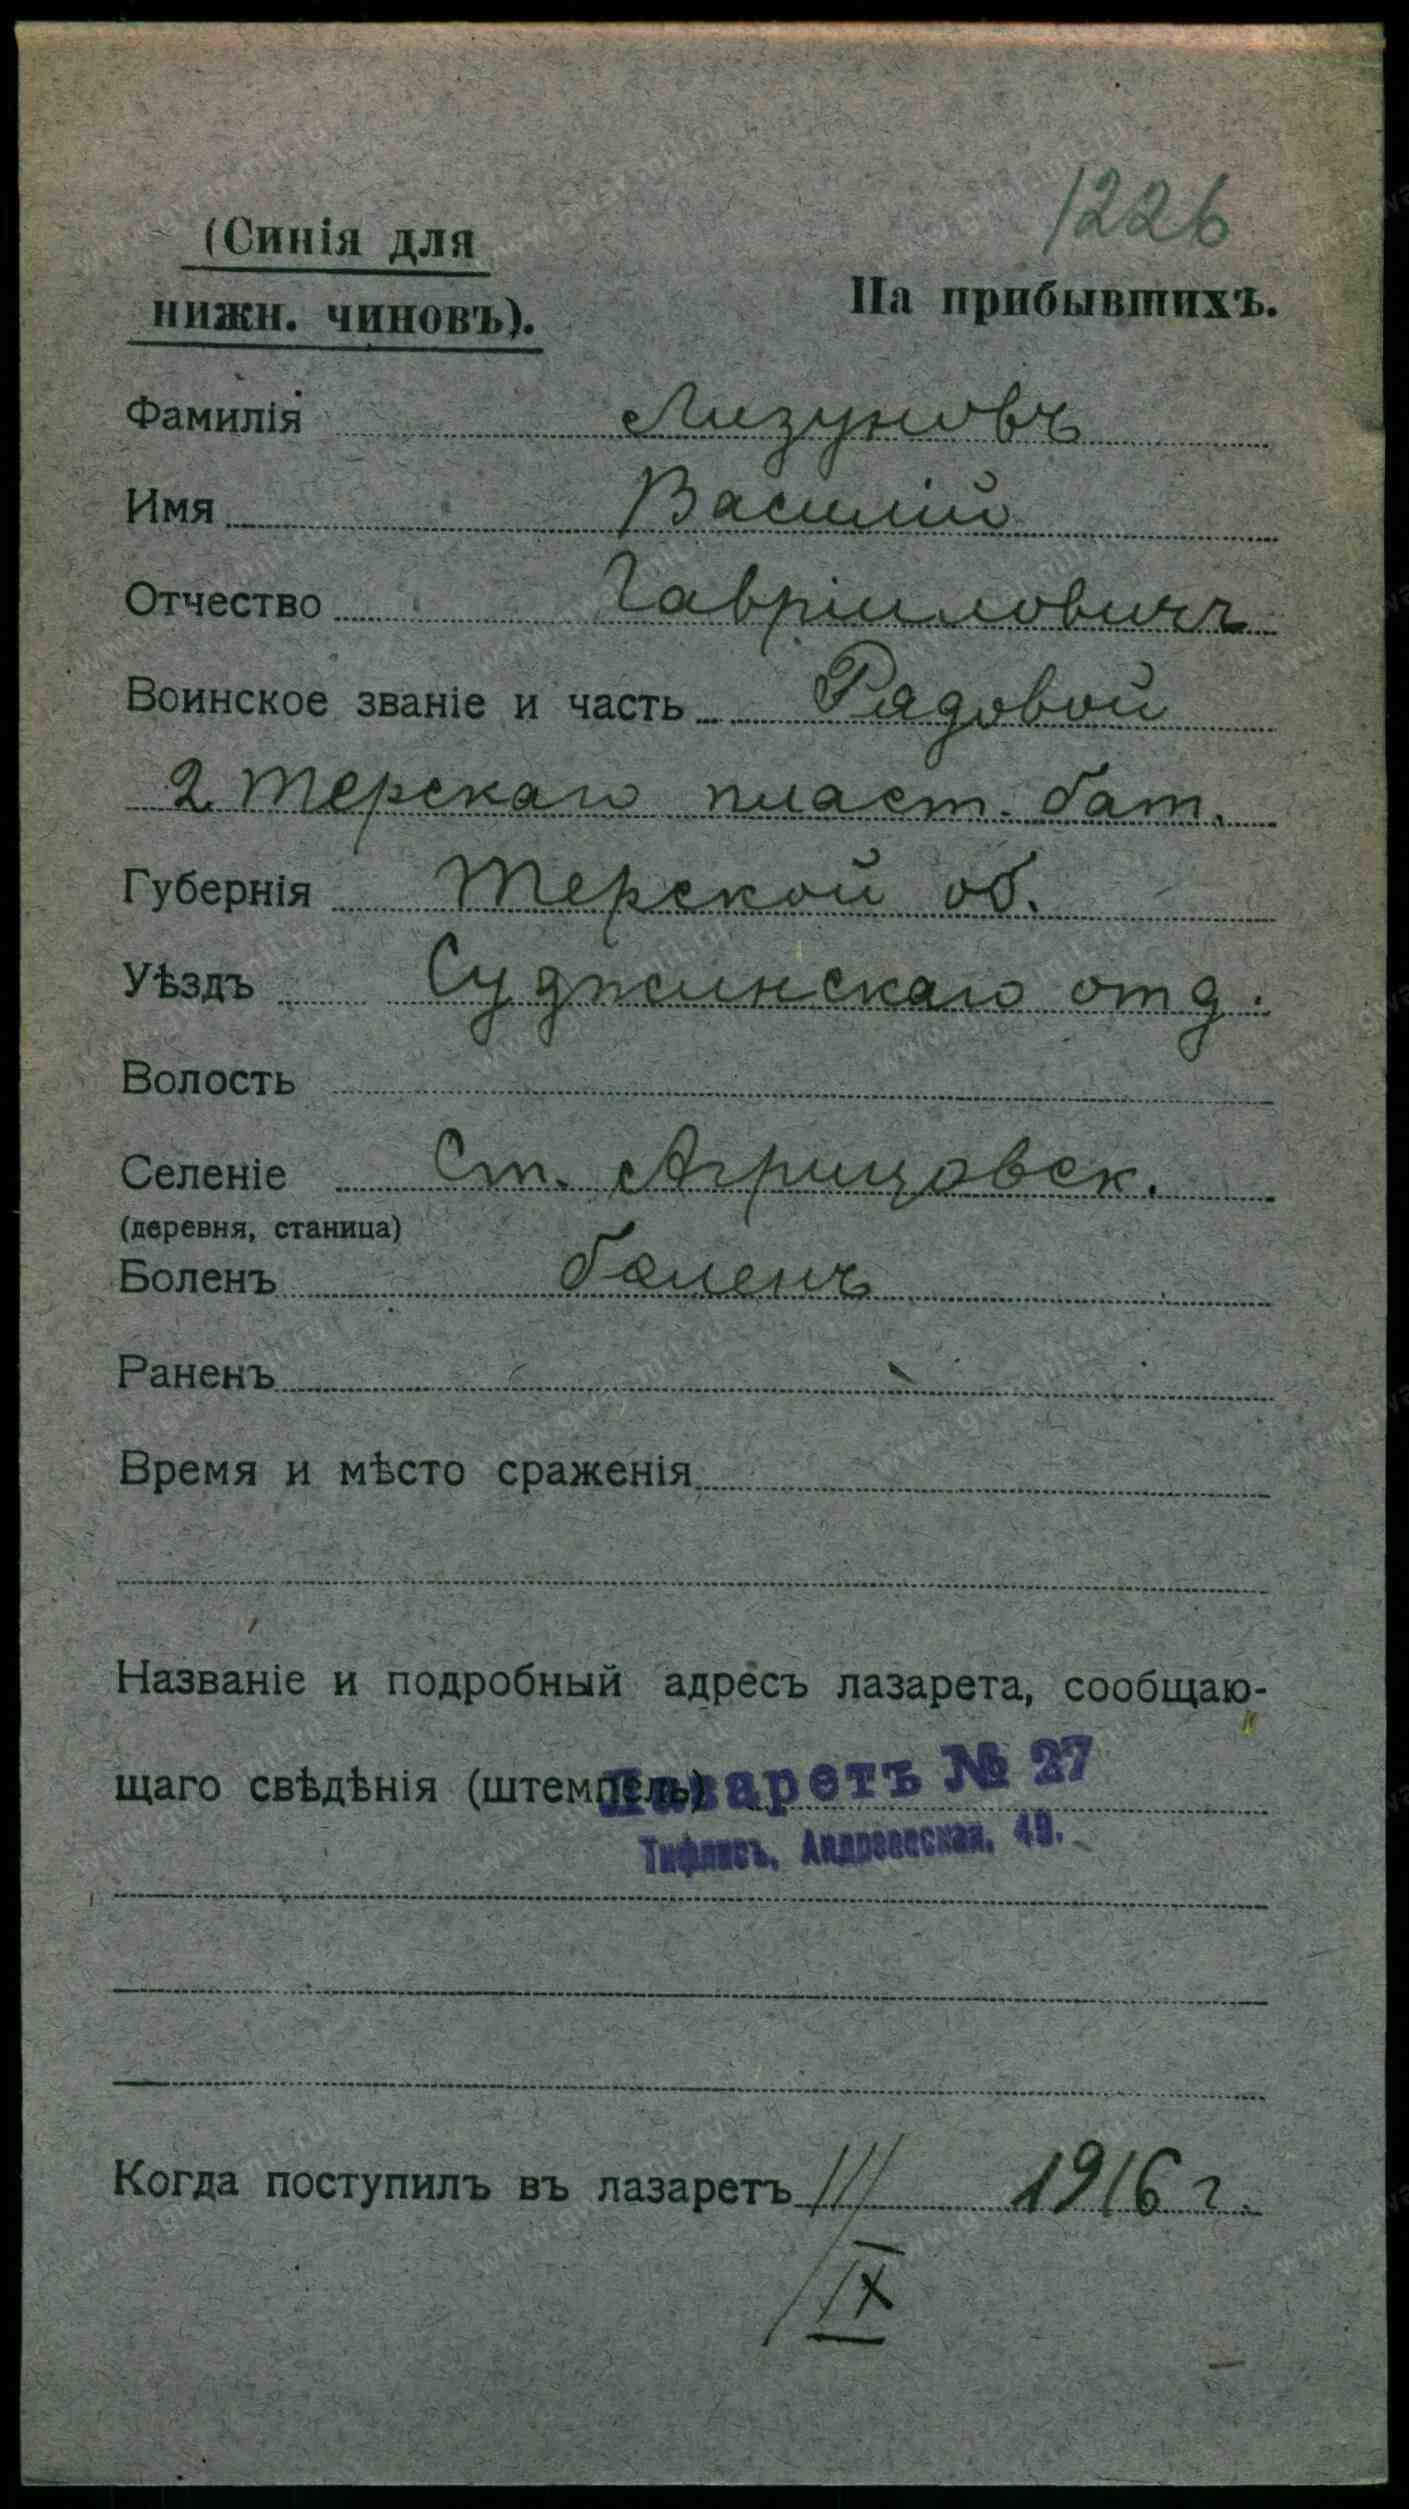 1226
(Синія для
нижн. чиновъ).
На прибывшихъ.
Фамилія Лизуновъ
Имя Василій
Отчество Гавріиловичъ
Воинское званіе и часть Рядовой
2 Терскаго пласт. бат.
Губернія Терской об.
Уѣздъ Суджинскаго отд.
Волость
Селеніе Ст. Агрицовск.
(деревня, станица)
Боленъ боленъ
Раненъ
Время и мѣсто сраженія
Названіе и подробный адресъ лазарета, сообщаю-
щаго свѣдѣнія (штемпель) Лазаретъ № 27
Тифлисъ, Андреевская, 49.
Когда поступилъ въ лазаретъ 11/IX 1916 г.